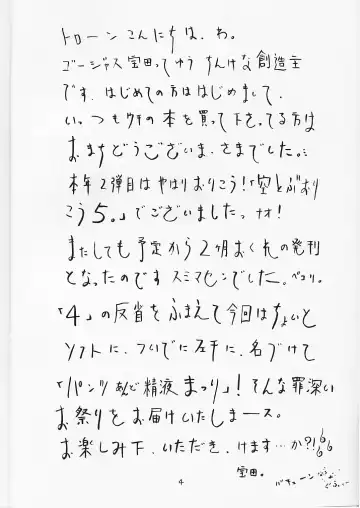 トローン こんにちは、わ。
ゴージャス宝田ってゆう ちんけな創造主
です、はじめての方ははじめまして、
い、つもウチの本を買って下さってる方は
おまちどうございま、さまでした。
本年2弾目はやはりおりこう!「空とぶおり
こう5。」でございましたっ ナオ!
またしても予定から2ヶ月おくれの発刊
となったのです スミマセンでした。ペコリ。
「4」の反省をふまえて今回はちょいと
ソフトに、ついでに左手に、名づけて
「パンツあんど精液まつり」! そんな罪深い
お祭りをお届けいたしまース。
お楽しみ下、いただき、けます…か?! 666
宝田。
バキューン
4